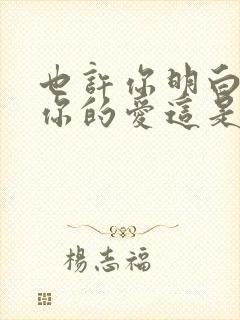 也許你明白
你的愛這是
楊志福